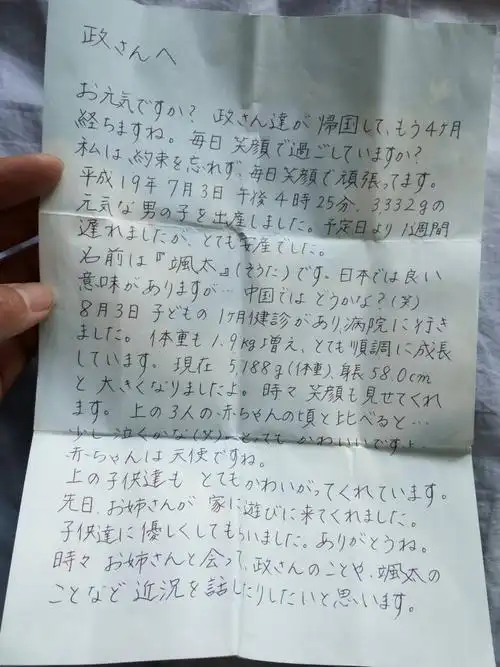 政さんへ
お元気ですか? 政さん達が 帰国して、もう4ヶ月
経ちますね。毎日 笑顔で過ごしていますか?
私は、約束を忘れず、毎日笑顔で頑張ってます。
平成19年 7月3日 午後4時25分、3,332gの
元気な男の子を出産しました。予定日より 1週間
遅れましたが、とても安産でした。
名前は『颯太』(そうた)です。日本では良い
意味がありますが… 中国では どうかな?(笑)
8月3日 子どもの 1ヶ月健診があり、病院に行き
ました。体重も 1.9kg増え、とても順調に成長
しています。現在 5,188g(体重)、身長 58.0cm
と 大きくなりましたよ。時々 笑顔も見せてくれ
ます。上の3人の赤ちゃんの頃と比べると…
少し泣くかな(笑) とっても かわいいですよ。
赤ちゃんは 天使ですね。
上の子供達も とてもかわいがってくれています。
先日、お姉さんが 家に遊びに来てくれました。
子供達に優しくしてもらいました。ありがとうね。
時々 お姉さんと会って、政さんのことや、颯太の
ことなど 近況を話したりしたいと思います。